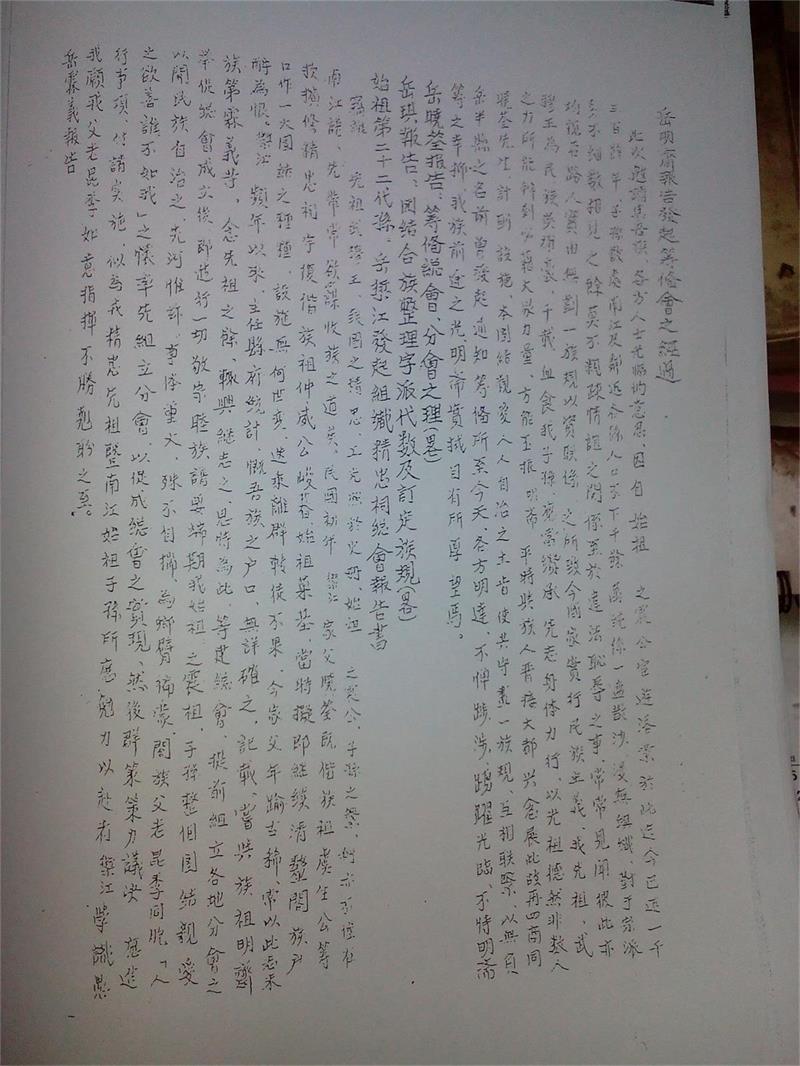 岳明齋報告發起籌備會之經過
此次邀請集吾族、各方人士光臨的意思、因自始祖 之震公宦遊落業於此迄今已近一千
三百餘年、子孫散處南江及鄰近各縣人口不下千餘、系統係一盤散沙、漫無組織、對于宗派
多不細數相見之餘莫不親疎情誼之間係至於違法恥辱之事、常常見聞彼此亦
均視若路人實由無劃一族規以資聯係 之所致今國家實行民族主義、我先祖、武
穆王為民族英雄 千載血食我子孫 繼承先志身体力行、以光祖德然非数人
之力所能辦到必藉大眾力量、方能玉振 明齋 平時與族人晋接大都兴念展此故再四商同
曉荃先生計劃設施、本團結親愛人人自治之主旨使共守盡一族規、互相联繄、以無負
岳半縣之名前曾發起通知籌備所至今天、各方明達、不憚跋涉、踴躍光臨、不特明齋
等之幸抑我族前途之光、明齋實拭目有所厚望焉。
岳曉荃报告、籌備總會、分會之理(畧)
岳琪報告、團结合族整理字派代数及訂定族規(畧)
始祖第二十二代孫、岳櫱江發起組織精忠祠總會報告書
竊維 先祖武穆王、我國之精忠、工光照於史册、始祖 之震公、子孫之
南江龍、先常常欲謀收族之道矣、民國初年 家父曉荃既偕族祖虞生公等
擴修精忠祠宇復偕族祖仲咸公峻 始祖墓基、當時擬即繼续清整閤族户
口作一大團結之种種、設施無何世变、迭乘離群 徒不果、今家父年踰古稀、常以此志未
酬為恨、櫱江 頻年以來、主任縣府统計、慨吾族之户口、無詳確之、記載、嘗與族祖明齋
族第霖義等、念先祖之餘、輒興繼志之、思時為此、等建総會、提前組立各地分會之
举促総會成立後即進行一切敬宗睦族諸要端期我始祖、之震祖、子孫整個團結親愛
以開民族自治之、先河惟茲事体重大、殊不自揣、為螂臂 閤族父老昆季同胞「人
之欲善誰不如我」之懷率先組立分會、以促成総會之實現、然後群策策力議決 應進
行事項、付諸实施、似為我精忠先祖暨南江始祖子孫所應 力以赴者櫱江學識愚
我願我父老昆季如意指揮不勝 盼之至。
岳霖義報告